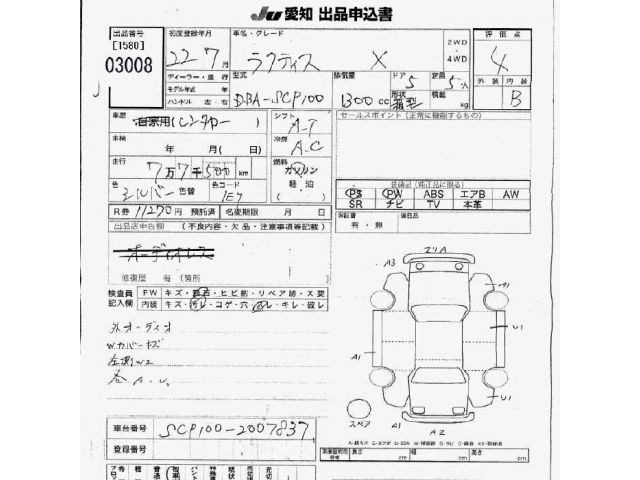 JU 愛知 出品申込書
出品番号 [1580] 03008
初度登録年月 22年 7月
車名・グレード ラクティス X
2WD
4WD
評価点 4
外装 内装 B
ディーラー・並行
モデル年式 年
ハンドル 左・右
型式 DBA-SCP100
排気量 1300cc
ドア 5 形状
定員 5人 積載 kg
車歴 自家用(レンタカー)
シフト A-T
セールスポイント(正常に機能するもの)
車検 年 月(日)
冷房 A.C
走行 7万7千500km
燃料 ガソリン 軽油
色 シルバー 色替 色コード 1E7
装備品(純正品に限る)
PS PW ABS エアB AW
SR ナビ TV 本革
R券 11270円 預託済 名変期限 月 日
保証書 有・無 後日品
出品店申告欄 (不良内容・欠品・注意事項等記載)
オーディオレス
修復歴 有(箇所 )
検査員記入欄
FW キズ・飛石・ヒビ割・リペア跡・X要
内装 キズ・汚レ・コゲ・穴・スレ・キレ・破レ
外オーディオ
Wカバーキズ
左側W2
各A.U.
A3
A1
U1
A1
U1
スペア A1 A2
車台番号 SCP100-2007837
登録番号
長さ cm 幅 cm 高さ cm